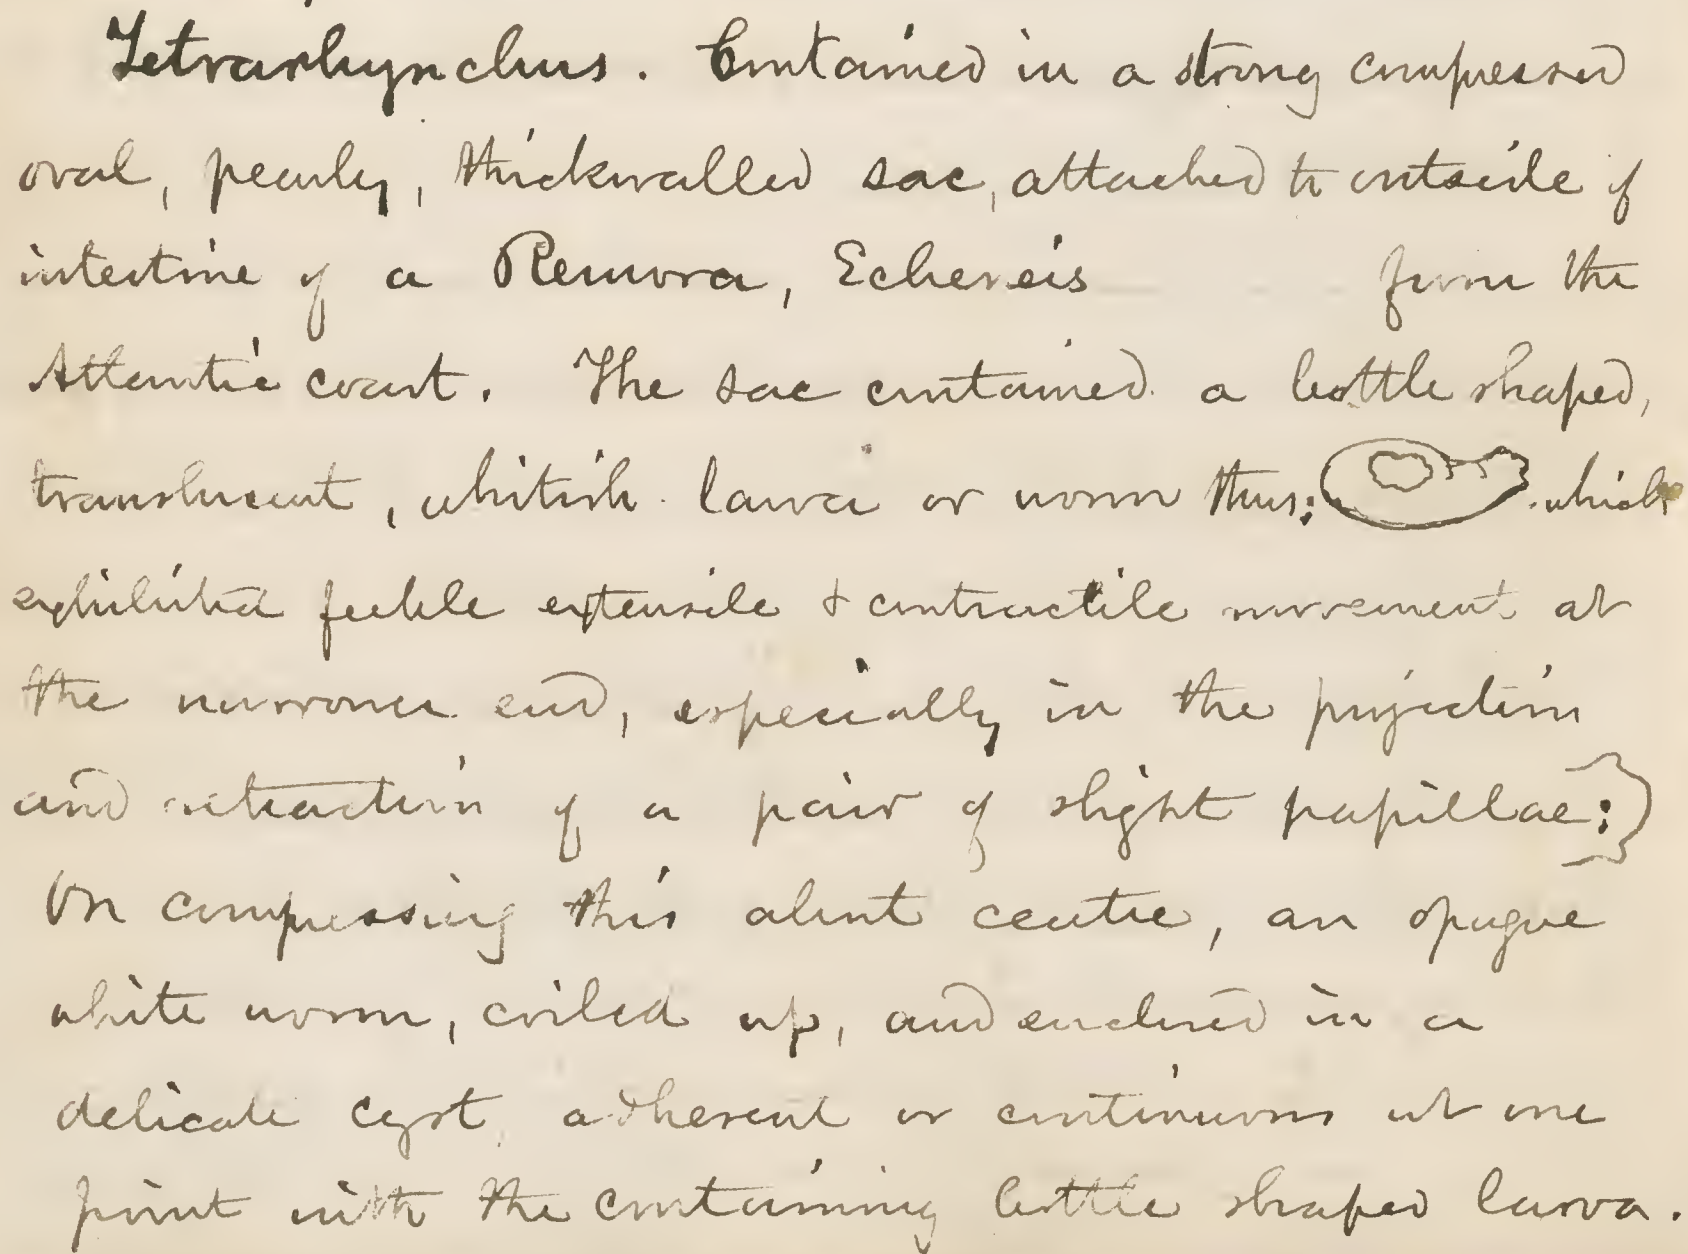 Tetrarhynchus. Contained in a strong compressed
oval, pearly, thickwalled sac, attached to outside of
intestine of a Remora, Echeneis from the
Atlantic coast. The sac contained a bottle shaped,
translucent, whitish larva or worm thus: which
exhibited feeble extensile & contractile movement at
the narrower end, especially in the projection
and retraction of a pair of slight papillae:
On compressing this about centre, an opaque
white worm, coiled up, and enclosed in a
delicate cyst, adherent or continuous at one
point with the containing bottle shaped larva.